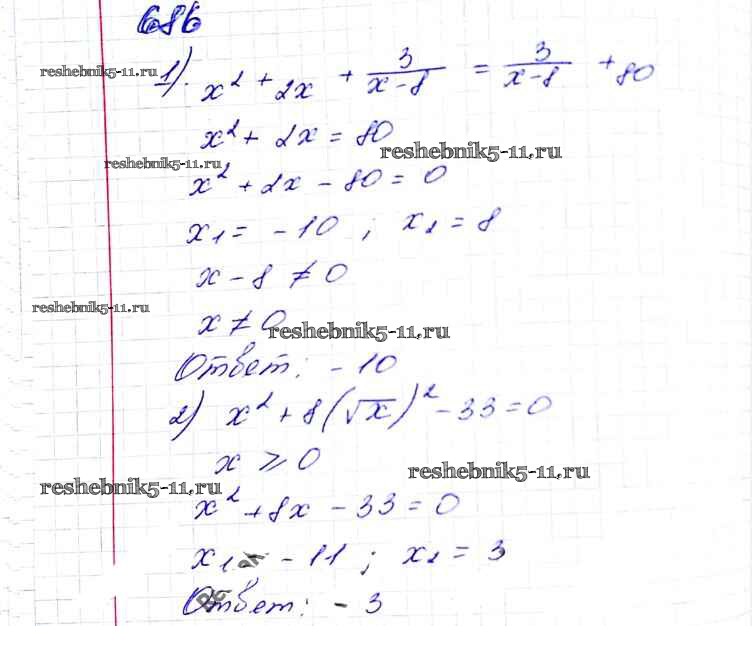 686
reshebnik5-11.ru 1). x² + 2x + 3/(x-8) = 3/(x-8) + 80
x² + 2x = 80
reshebnik5-11.ru
reshebnik5-11.ru
x² + 2x - 80 = 0
x₁ = -10 ; x₂ = 8
x - 8 ≠ 0
reshebnik5-11.ru
x ≠ 0
reshebnik5-11.ru
Ответ: -10
2) x² + 8(√x)² - 33 = 0
x ⩾ 0
reshebnik5-11.ru
reshebnik5-11.ru
x² + 8x - 33 = 0
x₁ = -11 ; x₂ = 3
Ответ: - 3